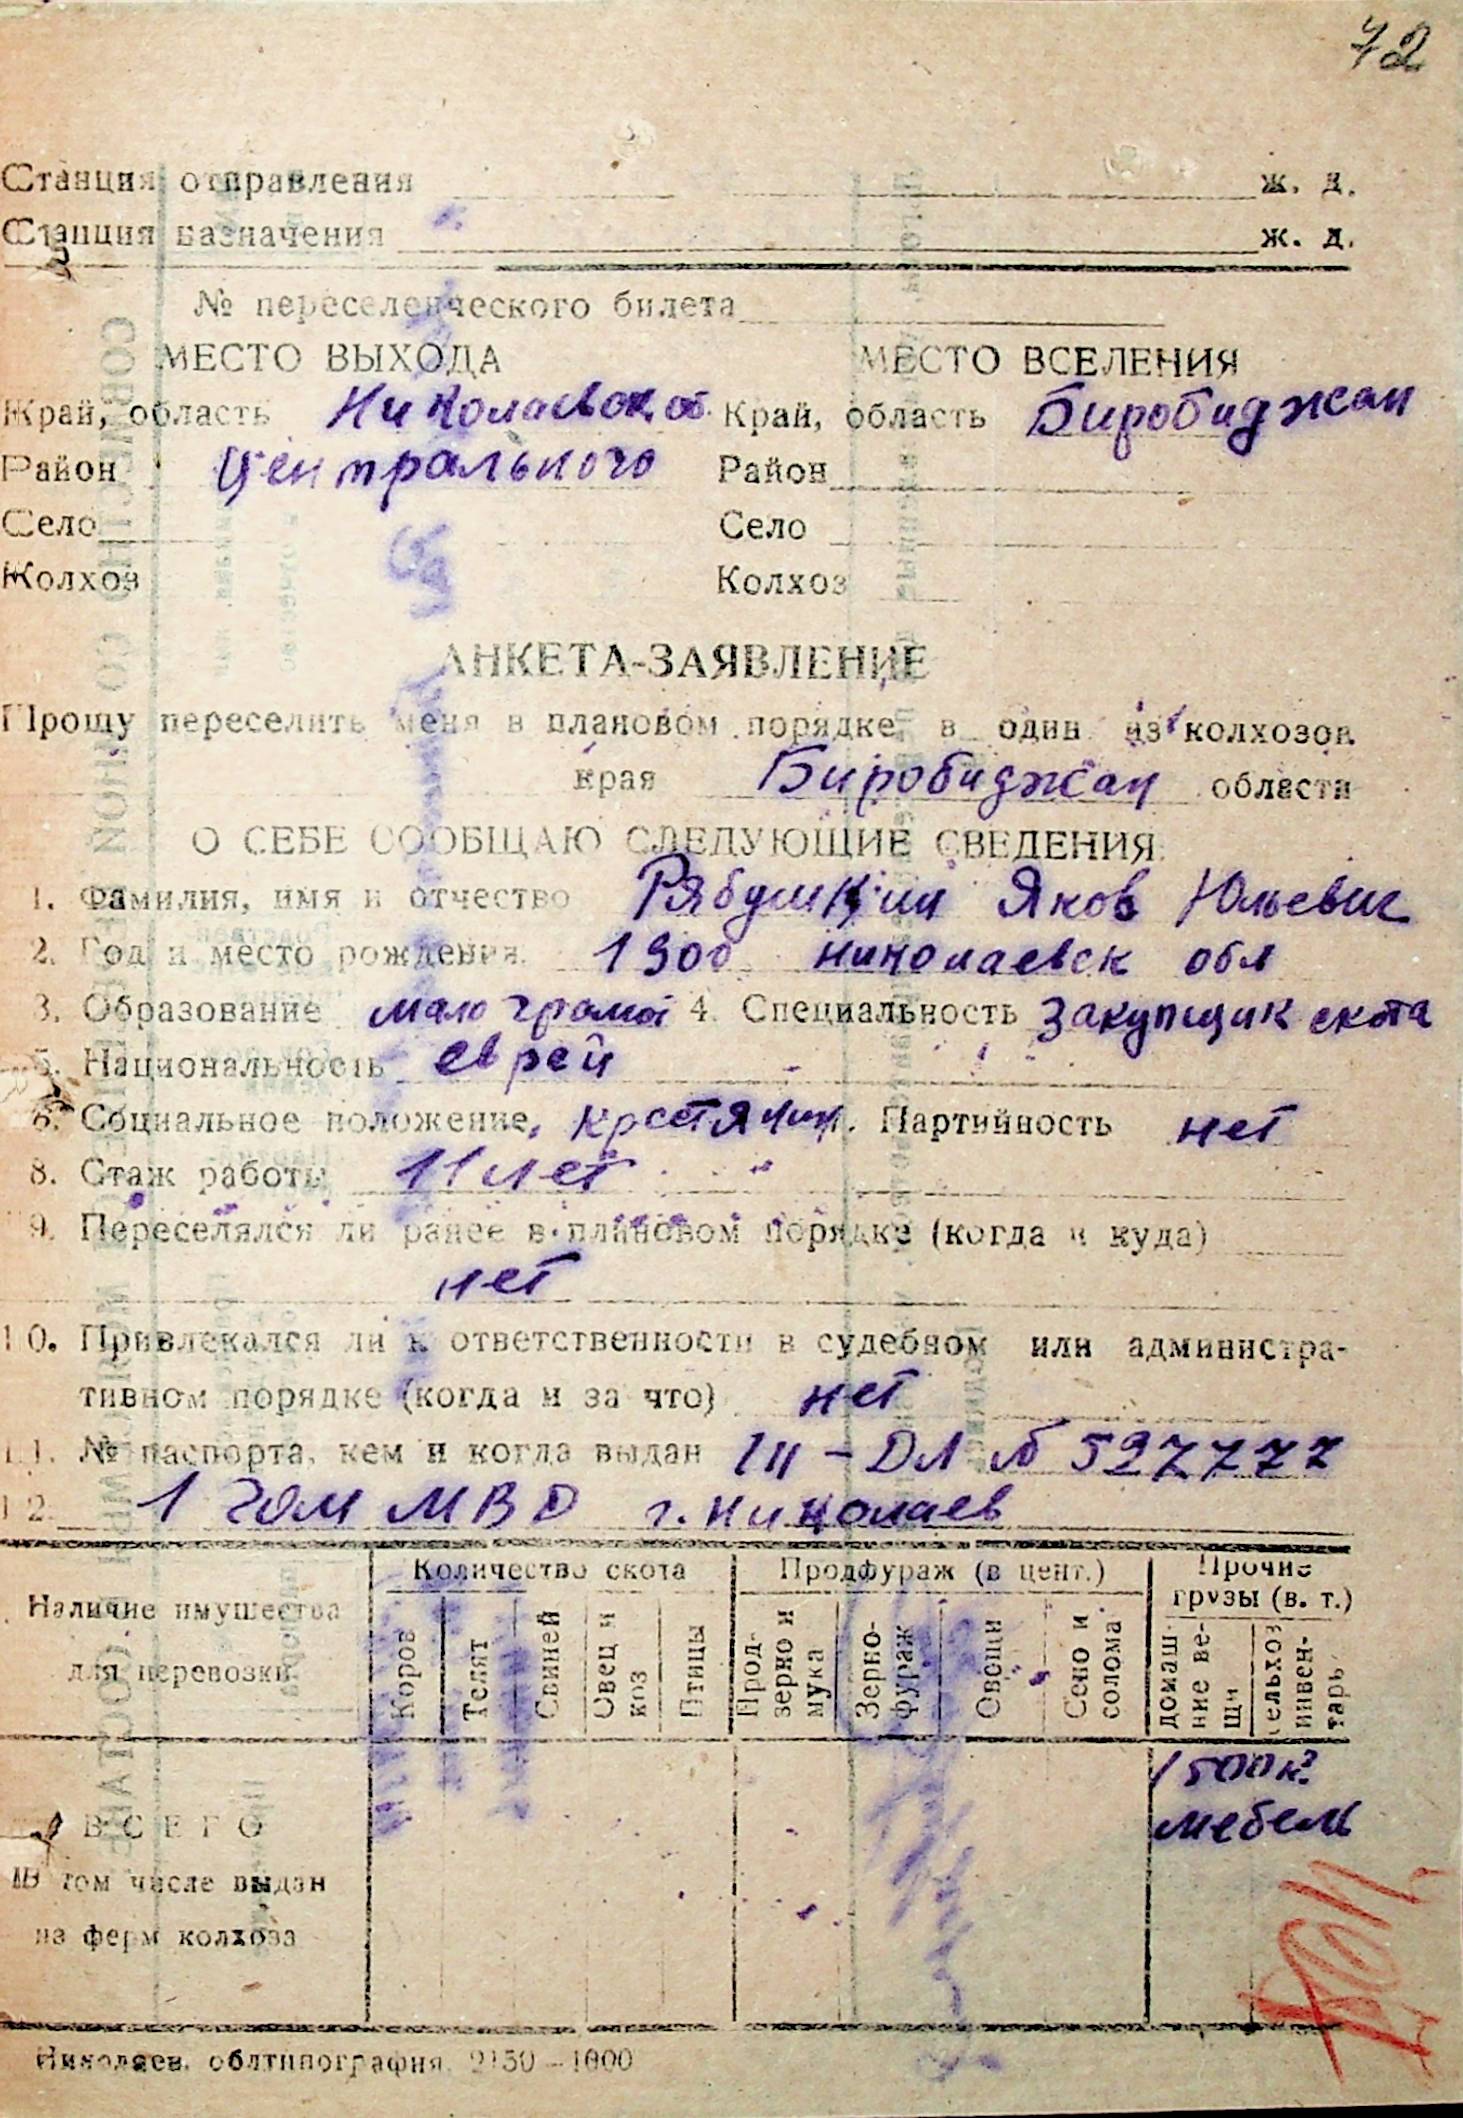 72
Станция отправления ж. д.
Станция назначения ж. д.
№ переселенческого билета
МЕСТО ВЫХОДА МЕСТО ВСЕЛЕНИЯ
Край, область Николаевск об. Край, область Биробиджан
Район Центрального Район
Село Село
Колхоз Колхоз
АНКЕТА-ЗАЯВЛЕНИЕ
Прошу переселить меня в плановом порядке в один из колхозов
края Биробиджан области
О СЕБЕ СООБЩАЮ СЛЕДУЮЩИЕ СВЕДЕНИЯ
1. Фамилия, имя и отчество Рябушкин Яков Юльевич
2. Год и место рождения 1900 николаевск обл
3. Образование мало грамот 4. Специальность Закупщик скота
5. Национальность еврей
6. Социальное положение, крстянин. Партийность нет
8. Стаж работы 11 лет
9. Переселялся ли ранее в плановом порядке (когда и куда)
нет
10. Привлекался ли к ответственности в судебном или администра-
тивном порядке (когда и за что) нет
11. № паспорта, кем и когда выдан III – ДЛ № 527777
12. 1 гом МВД г. Николаев
Наличие имущества для перевозки Количество скота Продфураж (в цент.) Прочие грузы (в. т.)
Коров Телят Свиней Овец и коз Птицы Прод-зерно и мука Зерно-фураж Овощи Сено и солома домаш-ние ве-щи сельхоз инвен-тарь
1500 кг.
ВСЕГО мебель
В том числе выдан
из ферм колхоза
Николаев, облтипография 2150–1000